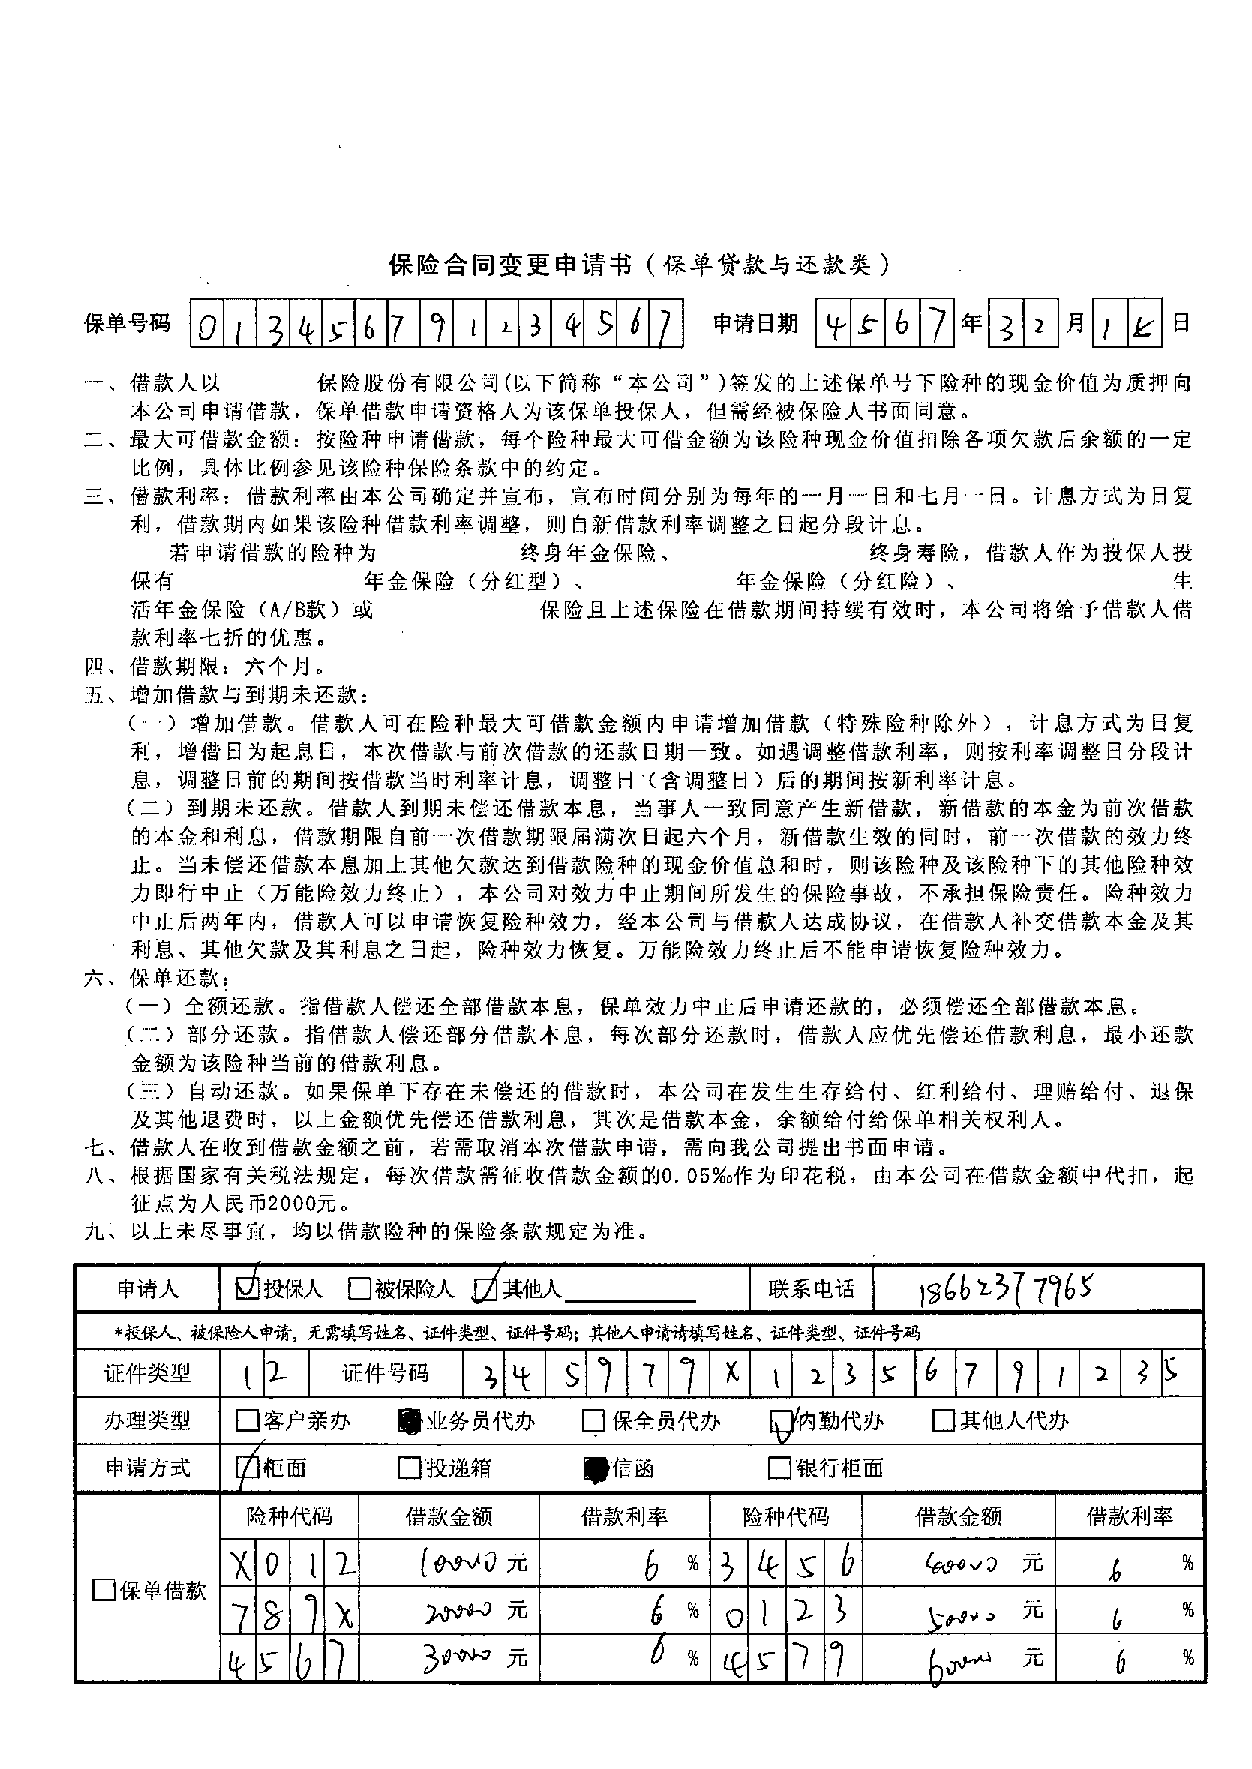 保险合同变更申请书（保单贷款与还款类）
保单号码 013456791234567 申请日期 4567年32月15日
一、借款人以 保险股份有限公司(以下简称“本公司”)签发的上述保单号下险种的现金价值为质押向
本公司申请借款，保单借款申请资格人为该保单投保人，但需经被保险人书面同意。
二、最大可借款金额：按险种申请借款，每个险种最大可借金额为该险种现金价值扣除各项欠款后余额的一定
比例，具体比例参见该险种保险条款中的约定。
三、借款利率：借款利率由本公司确定并宣布，宣布时间分别为每年的一月一日和七月一日。计息方式为日复
利，借款期内如果该险种借款利率调整，则自新借款利率调整之日起分段计息。
若申请借款的险种为 终身年金保险、 终身寿险，借款人作为投保人投
保有 年金保险（分红型）、 年金保险（分红险）、 生
活年金保险（A/B款）或 保险且上述保险在借款期间持续有效时，本公司将给予借款人借
款利率七折的优惠。
四、借款期限：六个月。
五、增加借款与到期未还款：
（一）增加借款。借款人可在险种最大可借款金额内申请增加借款（特殊险种除外），计息方式为日复
利，增借日为起息日，本次借款与前次借款的还款日期一致。如遇调整借款利率，则按利率调整日分段计
息，调整日前的期间按借款当时利率计息，调整日（含调整日）后的期间按新利率计息。
（二）到期未还款。借款人到期未偿还借款本息，当事人一致同意产生新借款，新借款的本金为前次借款
的本金和利息，借款期限自前一次借款期限届满次日起六个月，新借款生效的同时，前一次借款的效力终
止。当未偿还借款本息加上其他欠款达到借款险种的现金价值总和时，则该险种及该险种下的其他险种效
力即行中止（万能险效力终止），本公司对效力中止期间所发生的保险事故，不承担保险责任。险种效力
中止后两年内，借款人可以申请恢复险种效力，经本公司与借款人达成协议，在借款人补交借款本金及其
利息、其他欠款及其利息之日起，险种效力恢复。万能险效力终止后不能申请恢复险种效力。
六、保单还款：
（一）全额还款。指借款人偿还全部借款本息，保单效力中止后申请还款的，必须偿还全部借款本息。
（二）部分还款。指借款人偿还部分借款本息，每次部分还款时，借款人应优先偿还借款利息，最小还款
金额为该险种当前的借款利息。
（三）自动还款。如果保单下存在未偿还的借款时，本公司在发生生存给付、红利给付、理赔给付、退保
及其他退费时，以上金额优先偿还借款利息，其次是借款本金，余额给付给保单相关权利人。
七、借款人在收到借款金额之前，若需取消本次借款申请，需向我公司提出书面申请。
八、根据国家有关税法规定，每次借款需征收借款金额的0.05‰作为印花税，由本公司在借款金额中代扣，起
征点为人民币2000元。
九、以上未尽事宜，均以借款险种的保险条款规定为准。
申请人 投保人 被保险人 其他人 联系电话 18662377965
*投保人、被保险人申请，无需填写姓名、证件类型、证件号码；其他人申请请填写姓名、证件类型、证件号码
证件类型 12 证件号码 345979X12356791235
办理类型 客户亲办 业务员代办 保全员代办 内勤代办 其他人代办
申请方式 柜面 投递箱 信函 银行柜面
险种代码 借款金额 借款利率 险种代码 借款金额 借款利率
X012 10000元 6% 3456 40000元 6%
保单借款
789X 20000元 6% 0123 50000元 6%
4567 30000元 6% 4579 60000元 6%